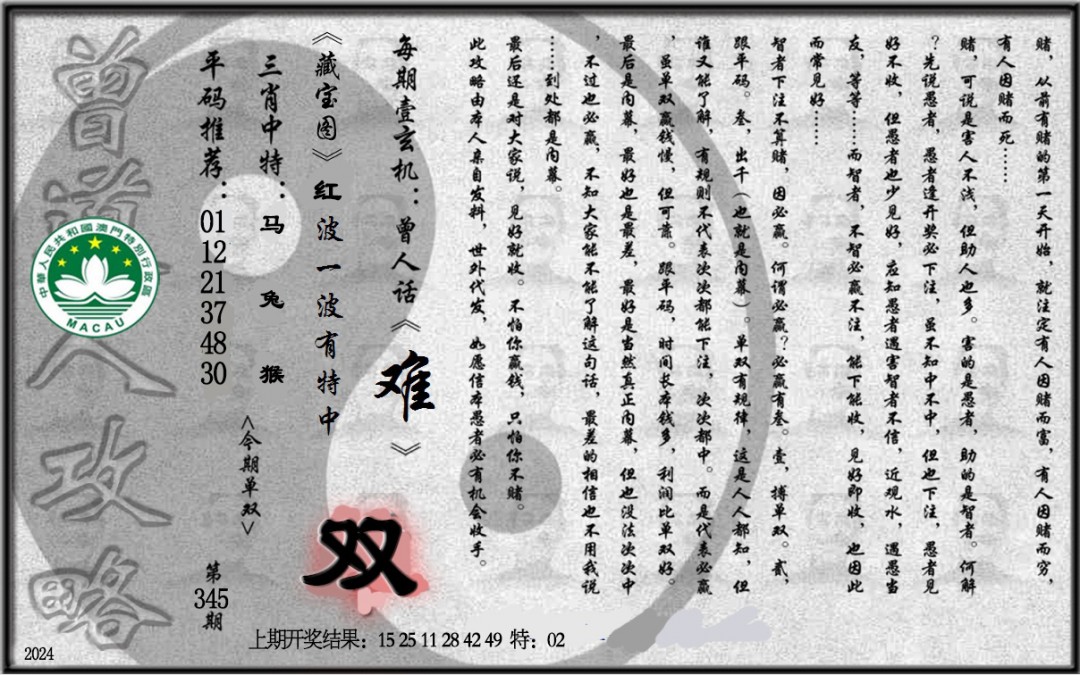 赌，从前有赌的第一天开始，就注定有人因赌而富，有人因赌而穷，
有人因赌而死……
赌，可说是害人不浅，但助人也多。害的是愚者，助的是智者。何解
？先说愚者，愚者逢开奖必下注，虽不知中不中，但也下注，愚者见
好不收，但愚者也少见好，应知愚者遇害智者不信，近观水，遇愚当
友，等等……而智者，不智必赢不注，能下能收，见好即收，也因此
而常见好……
智者下注不算赌，因必赢。何谓必赢？必赢有叁。壹，搏单双。贰，
跟平码。叁，出千（也就是内幕）。单双有规律，这是人人都知，但
谁又能了解，有规则不代表次次都能下注，次次都中。而是代表必赢
，虽单双赢钱慢，但可靠。跟平码，时间长本钱多，利润比单双好。
最后是内幕，最好也是最差，最好是当然真正内幕，但也没法次次中
，不过也必赢，不知大家能不能了解这句话，最差的相信也不用我说
……到处都是内幕。
最后还是对大家说，见好就收。不怕你赢钱，只怕你不赌。
此攻略由本人亲自发料，世外代发，如愿信本愚者必有机会收手。
每期壹玄机：曾人话《难》
《藏宝图》红波一波有特中
双
三肖中特：马 兔 猴
<今期单双>
平码推荐：01 12 21 37 48 30
第345期
曾道人攻略
中華人民共和國澳門特別行政區
MACAU
上期开奖结果：15 25 11 28 42 49 特：02
2024